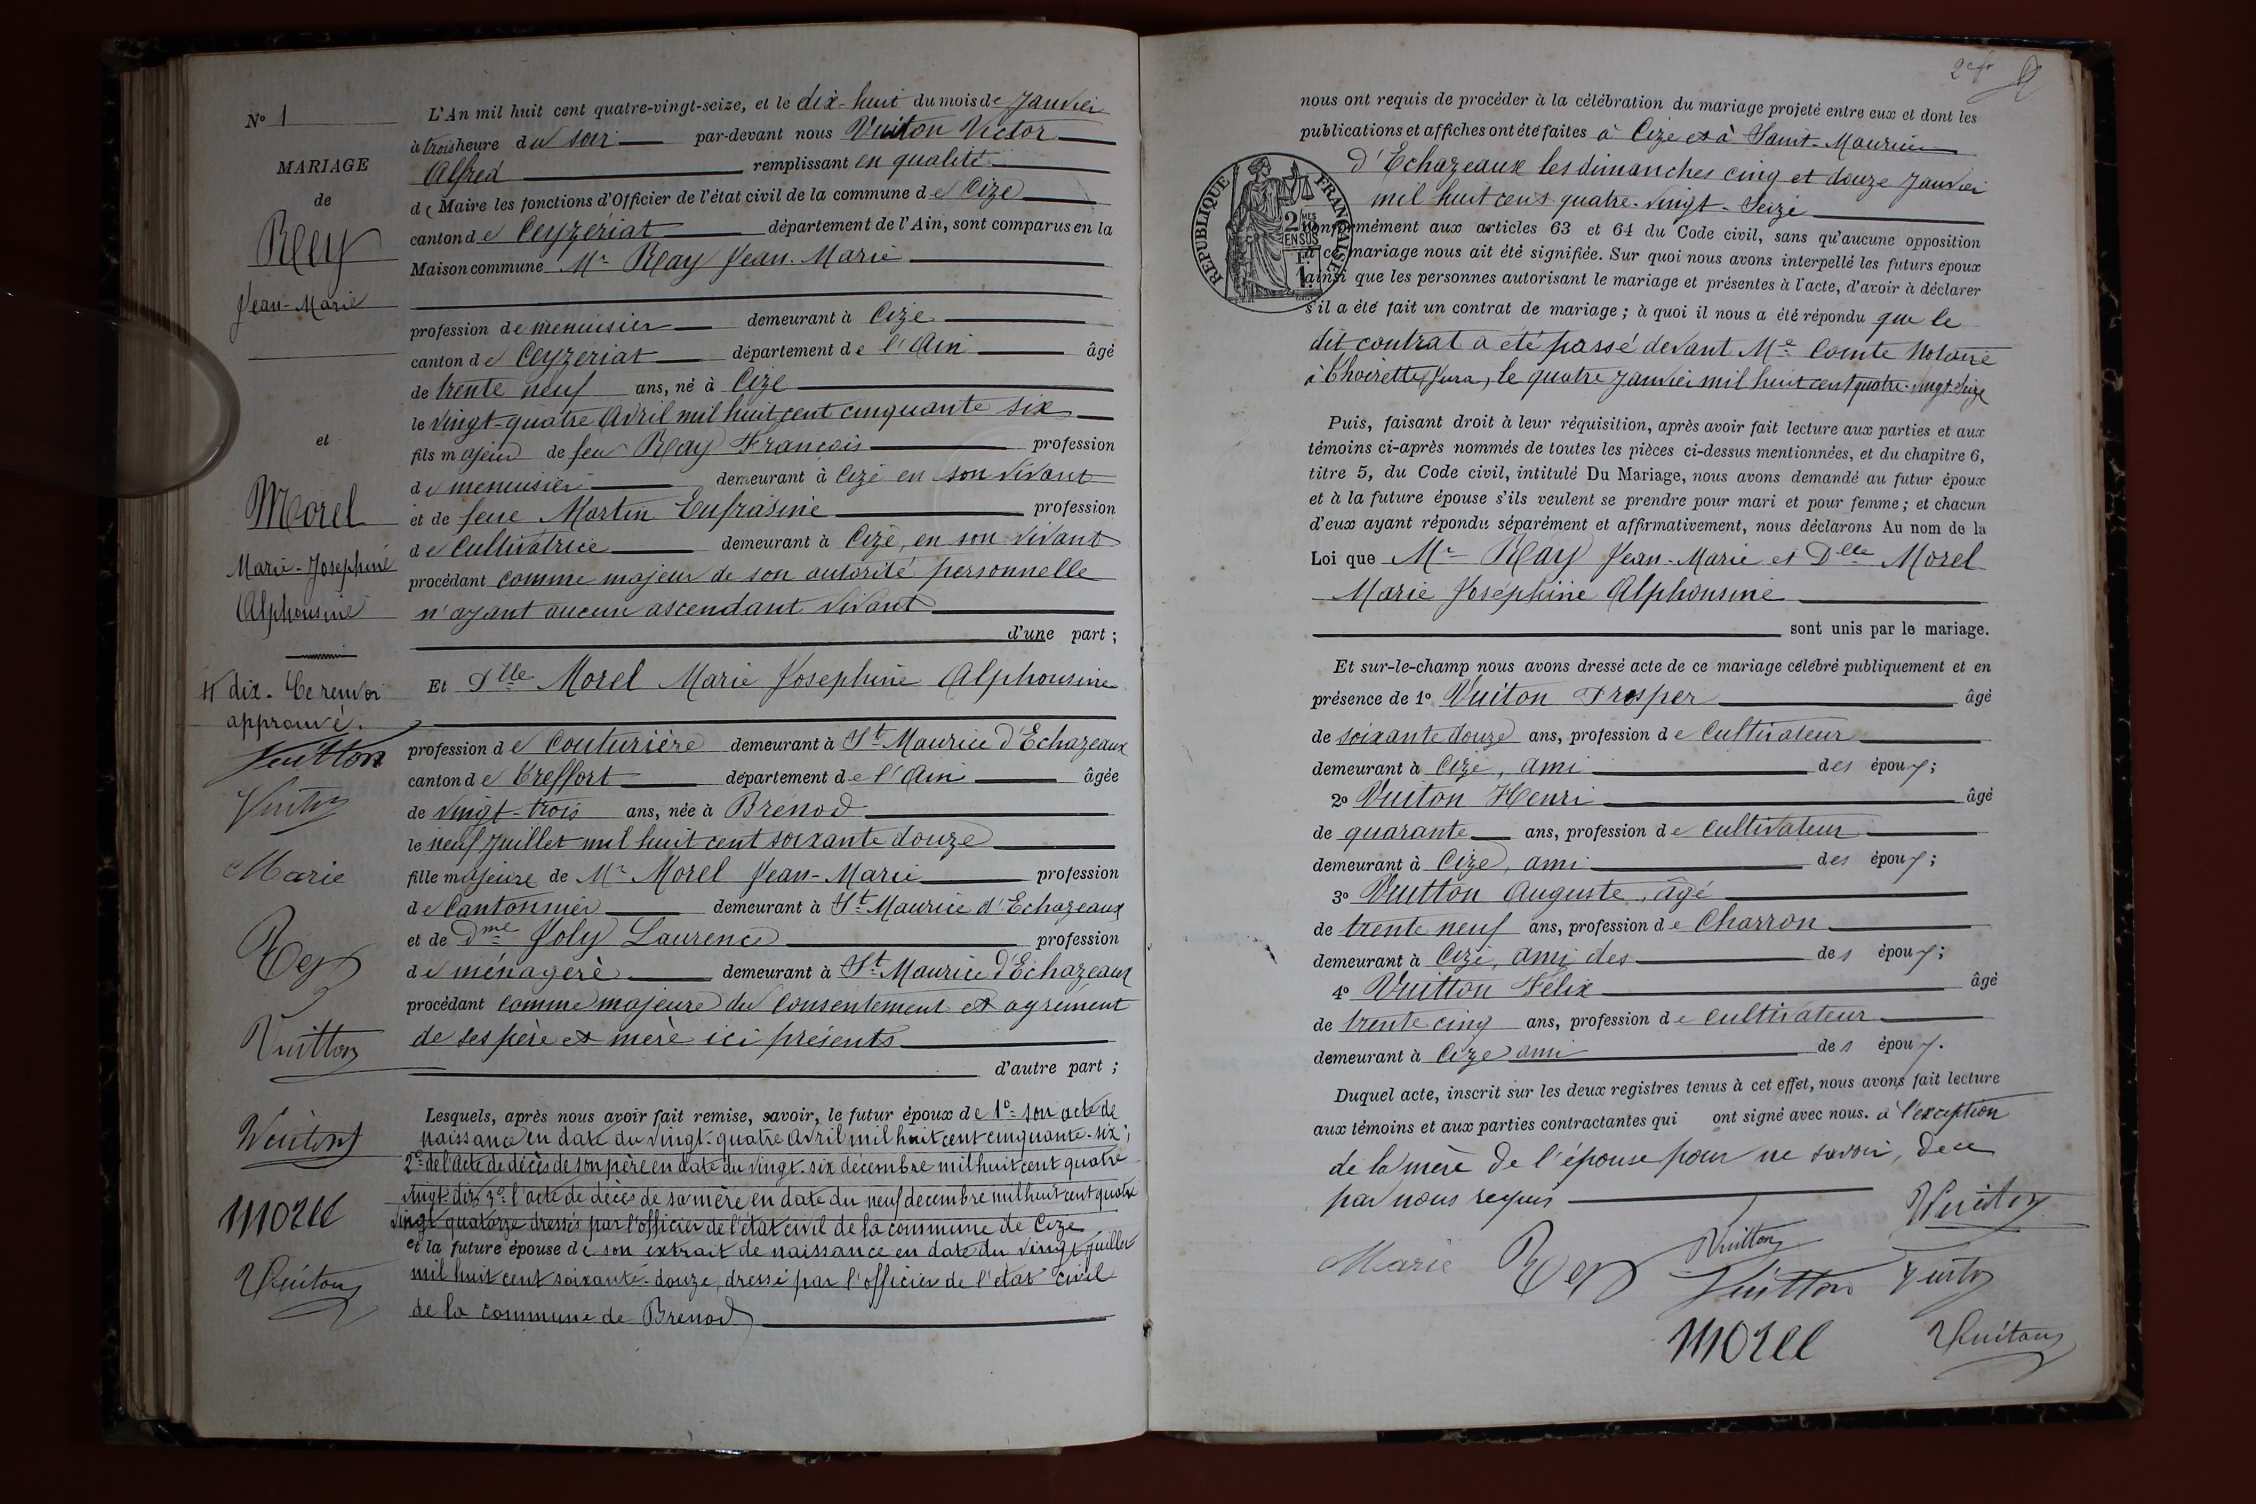 N° 1
MARIAGE
de
Rey
Jean-Marie
et
Morel
Marie-Joséphine
Alphonsine
dix. Ce renvoi
approuvé.
Vuitton
Marie
Rey
Vuitton
Vuiton
Morel
Vuiton
L'An mil huit cent quatre-vingt-seize, et le dix-huit du mois de Janvier
à trois heure du soir par-devant nous Vuiton Victor
Alfred remplissant en qualité
de Maire les fonctions d'Officier de l'état civil de la commune de Cize
canton de Ceyzériat département de l'Ain, sont comparus en la
Maison commune Mr Rey Jean-Marie
profession de menuisier demeurant à Cize
canton de Ceyzeriat département de l'Ain âgé
de trente neuf ans, né à Cize
le vingt-quatre Avril mil huit cent cinquante six
fils majeur de feu Rey François profession
de menuisier demeurant à Cize en son vivant
et de feue Martin Eufrasine profession
de Cultivatrice demeurant à Cize, en son vivant
procédant comme majeur de son autorité personnelle
n'ayant aucun ascendant vivant
d'une part ;
Et Dlle Morel Marie Josephine Alphonsine
profession de Couturière demeurant à St Maurice d'Echazeaux
canton de Treffort département de l'Ain âgée
de vingt-trois ans, née à Brénod
le neuf Juillet mil huit cent soixante douze
fille majeure de Mr Morel Jean-Marie profession
de Cantonnier demeurant à St Maurice d'Echazeaux
et de Dme Joly Laurence profession
de ménagère demeurant à St Maurice d'Echazeaux
procédant comme majeure du consentement et agrément
de ses père et mère ici présents
d'autre part ;
Lesquels, après nous avoir fait remise, savoir, le futur époux de 1° son acte de
naissance en date du vingt-quatre Avril mil huit cent cinquante-six ;
2° de l'acte de décès de son père en date du vingt-six décembre mil huit cent quatre
vingt-dix, 3° l'acte de décès de sa mère en date du neuf décembre mil huit cent quatre
vingt quatorze dressés par l'officier de l'état civil de la commune de Cize
et la future épouse de son extrait de naissance en date du vingt juillet
mil huit cent soixante-douze, dressé par l'officier de l'état civil
de la commune de Brenod
nous ont requis de procéder à la célébration du mariage projeté entre eux et dont les
publications et affiches ont été faites à Cize et à Saint-Maurice
d'Echazeaux les dimanches cinq et douze Janvier
mil huit cent quatre-vingt-Seize
RÉPUBLIQUE FRANÇAISE
conformément aux articles 63 et 64 du Code civil, sans qu'aucune opposition
à ce mariage nous ait été signifiée. Sur quoi nous avons interpellé les futurs époux
ainsi que les personnes autorisant le mariage et présentes à l'acte, d'avoir à déclarer
s'il a été fait un contrat de mariage ; à quoi il nous a été répondu que le
dit contrat a été passé devant Me Comte Notaire
à Thoirette, Jura, le quatre Janvier mil huit cent quatre-vingt-seize
Puis, faisant droit à leur réquisition, après avoir fait lecture aux parties et aux
témoins ci-après nommés de toutes les pièces ci-dessus mentionnées, et du chapitre 6,
titre 5, du Code civil, intitulé Du Mariage, nous avons demandé au futur époux
et à la future épouse s'ils veulent se prendre pour mari et pour femme ; et chacun
d'eux ayant répondu séparément et affirmativement, nous déclarons Au nom de la
Loi que Mr Rey Jean-Marie et Dlle Morel
Marie Joséphine Alphonsine
sont unis par le mariage.
Et sur-le-champ nous avons dressé acte de ce mariage célébré publiquement et en
présence de 1° Vuiton Prosper âgé
de soixante douze ans, profession de Cultivateur
demeurant à Cize, ami des époux ;
2° Vuiton Henri âgé
de quarante ans, profession de cultivateur
demeurant à Cize, ami des époux ;
3° Vuitton Auguste, âgé
de trente neuf ans, profession de Charron
demeurant à Cize, ami des des époux ;
4° Vuitton Félix âgé
de trente cinq ans, profession de cultivateur
demeurant à Cize ami des époux.
Duquel acte, inscrit sur les deux registres tenus à cet effet, nous avons fait lecture
aux témoins et aux parties contractantes qui ont signé avec nous. à l'exception
de la mère de l'épouse pour ne savoir, de ce
par nous requis
Vuiton
Marie Rey Vuitton
Vuitton
Morel Vuiton